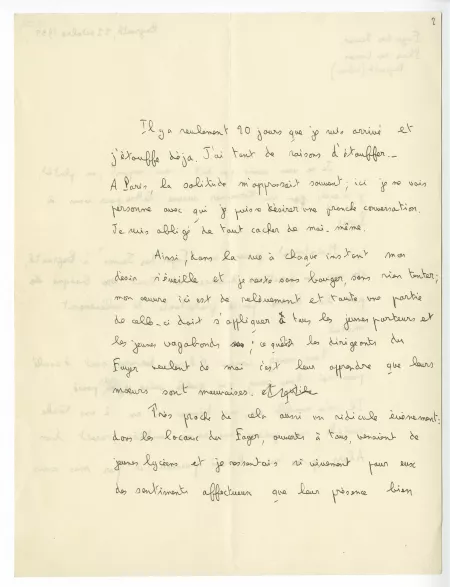 2
Il y a seulement 20 jours que je suis arrivé et
j'étouffe déjà. J'ai tant de raisons d'étouffer_
A Paris, la solitude m'oppressait souvent, ici je ne vois
personne avec qui je puisse désirer une franche conversation.
Je suis obligé de tout cacher de moi-même.
Ainsi, dans la rue à chaque instant mon
désir s'éveille et je reste sans bouger, sans rien tenter;
mon œuvre ici est de relèvement et toute une partie
de celle-ci doit s'appliquer à tous les jeunes porteurs et
les jeunes vagabonds ; ce que les dirigeants du
Foyer veulent de moi c'est leur apprendre que leurs
mœurs sont mauvaises.
Très proche de cela aussi un ridicule évènement:
dans les locaux du Foyer, ouverts à tous, venaient de
jeunes lycéens et je ressentais si vivement pour eux
des sentiments affectueux que leur présence bien